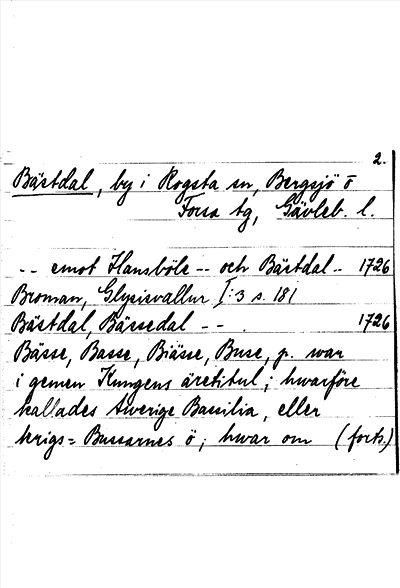 2.
Bästdal, by i Rogsta sn, Bergsjö o
Forsa tg, Gävleb. l.
-- emot Hansböle -- och Bästdal -- 1726
Broman, Glysisvallur I:3 s. 181
Bästdal, Bässedal -- . 1726
Bässe, Basse, Biässe, Buse, p. war
i gemen Kungens äretitul; hwarföre
kallades Swerige Bassilia, eller
krigs= Bussarnes ö; hwar om (forts)